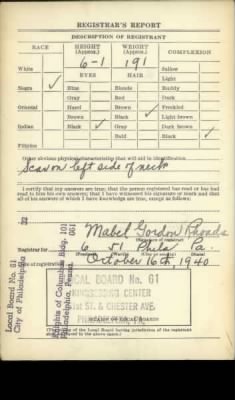 REGISTRAR'S REPORT
DESCRIPTION OF REGISTRANT
RACE HEIGHT (Approx.) WEIGHT (Approx.) COMPLEXION
6-1 191
White EYES HAIR Sallow
Light
Negro ✓ Blue Blonde Ruddy
Gray Red Dark
Oriental Hazel Brown Freckled
Brown Black ✓ Light brown
Indian Black ✓ Gray Dark brown ✓
Bald Black
Filipino
Other obvious physical characteristics that will aid in identification
Scar on left side of neck
I certify that my answers are true; that the person registered has read or has had
read to him his own answers; that I have witnessed his signature or mark and that
all of his answers of which I have knowledge are true, except as follows:
Mabel Gordon Rhoads
(Signature of registrar)
Registrar for 6 51 Phila Pa.
October 16th, 1940
LOCAL BOARD No. 61
KINGSESSING CENTER
51st ST. & CHESTER AVE.
PHILADELPHIA, PA.
(STAMP OF LOCAL BOARD)
(The stamp of the Local Board having jurisdiction of the registrant
Local Board No. 61
City of Philadelphia
Knights of Columbus Bldg.
Philadelphia, Penna.
32
101
061